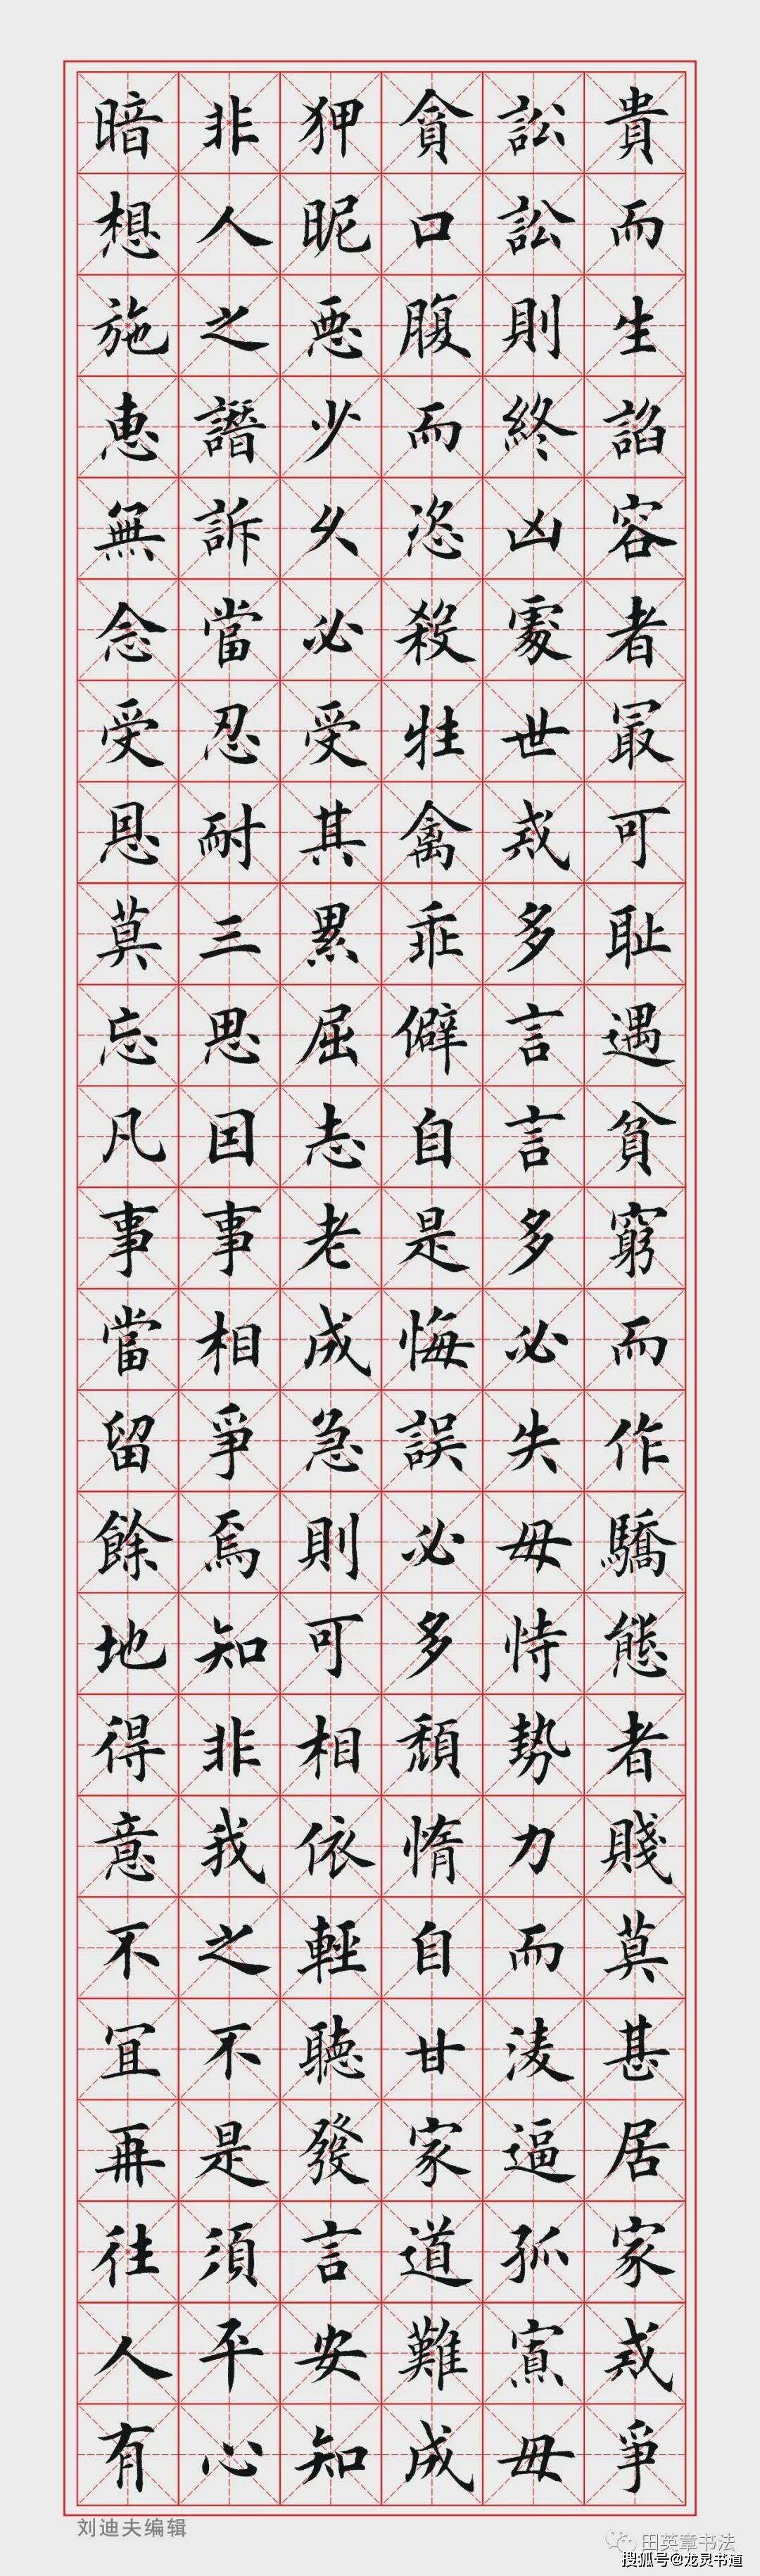 貴而生諂容者最可恥遇貧窮而作驕態者賤莫甚居家戒爭
訟訟則終凶處世戒多言言多必失毋恃勢力而凌逼孤寡毋
貪口腹而恣殺牲禽乖僻自是悔誤必多頹惰自甘家道難成
狎昵惡少久必受其累屈志老成急則可相依輕聽發言安知
非人之譖訴當忍耐三思因事相爭焉知非我之不是須平心
暗想施惠無念受恩莫忘凡事當留餘地得意不宜再往人有
刘迪夫编辑
田英章书法
搜狐号@龙灵书道